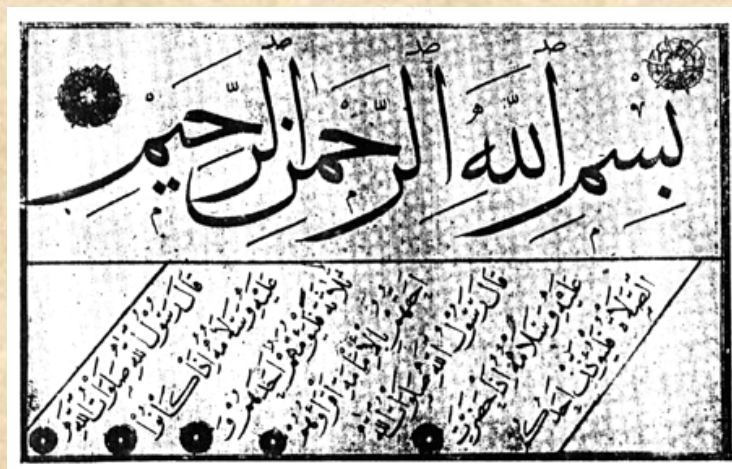 بِسْمِ اللَّهِ الرَّحْمٰنِ الرَّحِيمِ
قَالَ رَسُولُ اللهِ صَلَوَاتُ اللهِ
عَلَيْهِ وَسَلَامُهُ إِذَا كَانُوا
ثَلَاثَةً فَلْيَؤُمَّهُمْ أَحَدُهُمْ وَ
أَحَقُّهُمْ بِالْإِمَامَةِ أَقْرَؤُهُمْ
قَالَ رَسُولُ اللهِ صَلَوَاتُ اللهِ
عَلَيْهِ وَسَلَامُهُ إِذَا حَضَرَتِ
الصَّلَاةُ فَلْيُؤَذِّنْ أَحَدُكُمْ